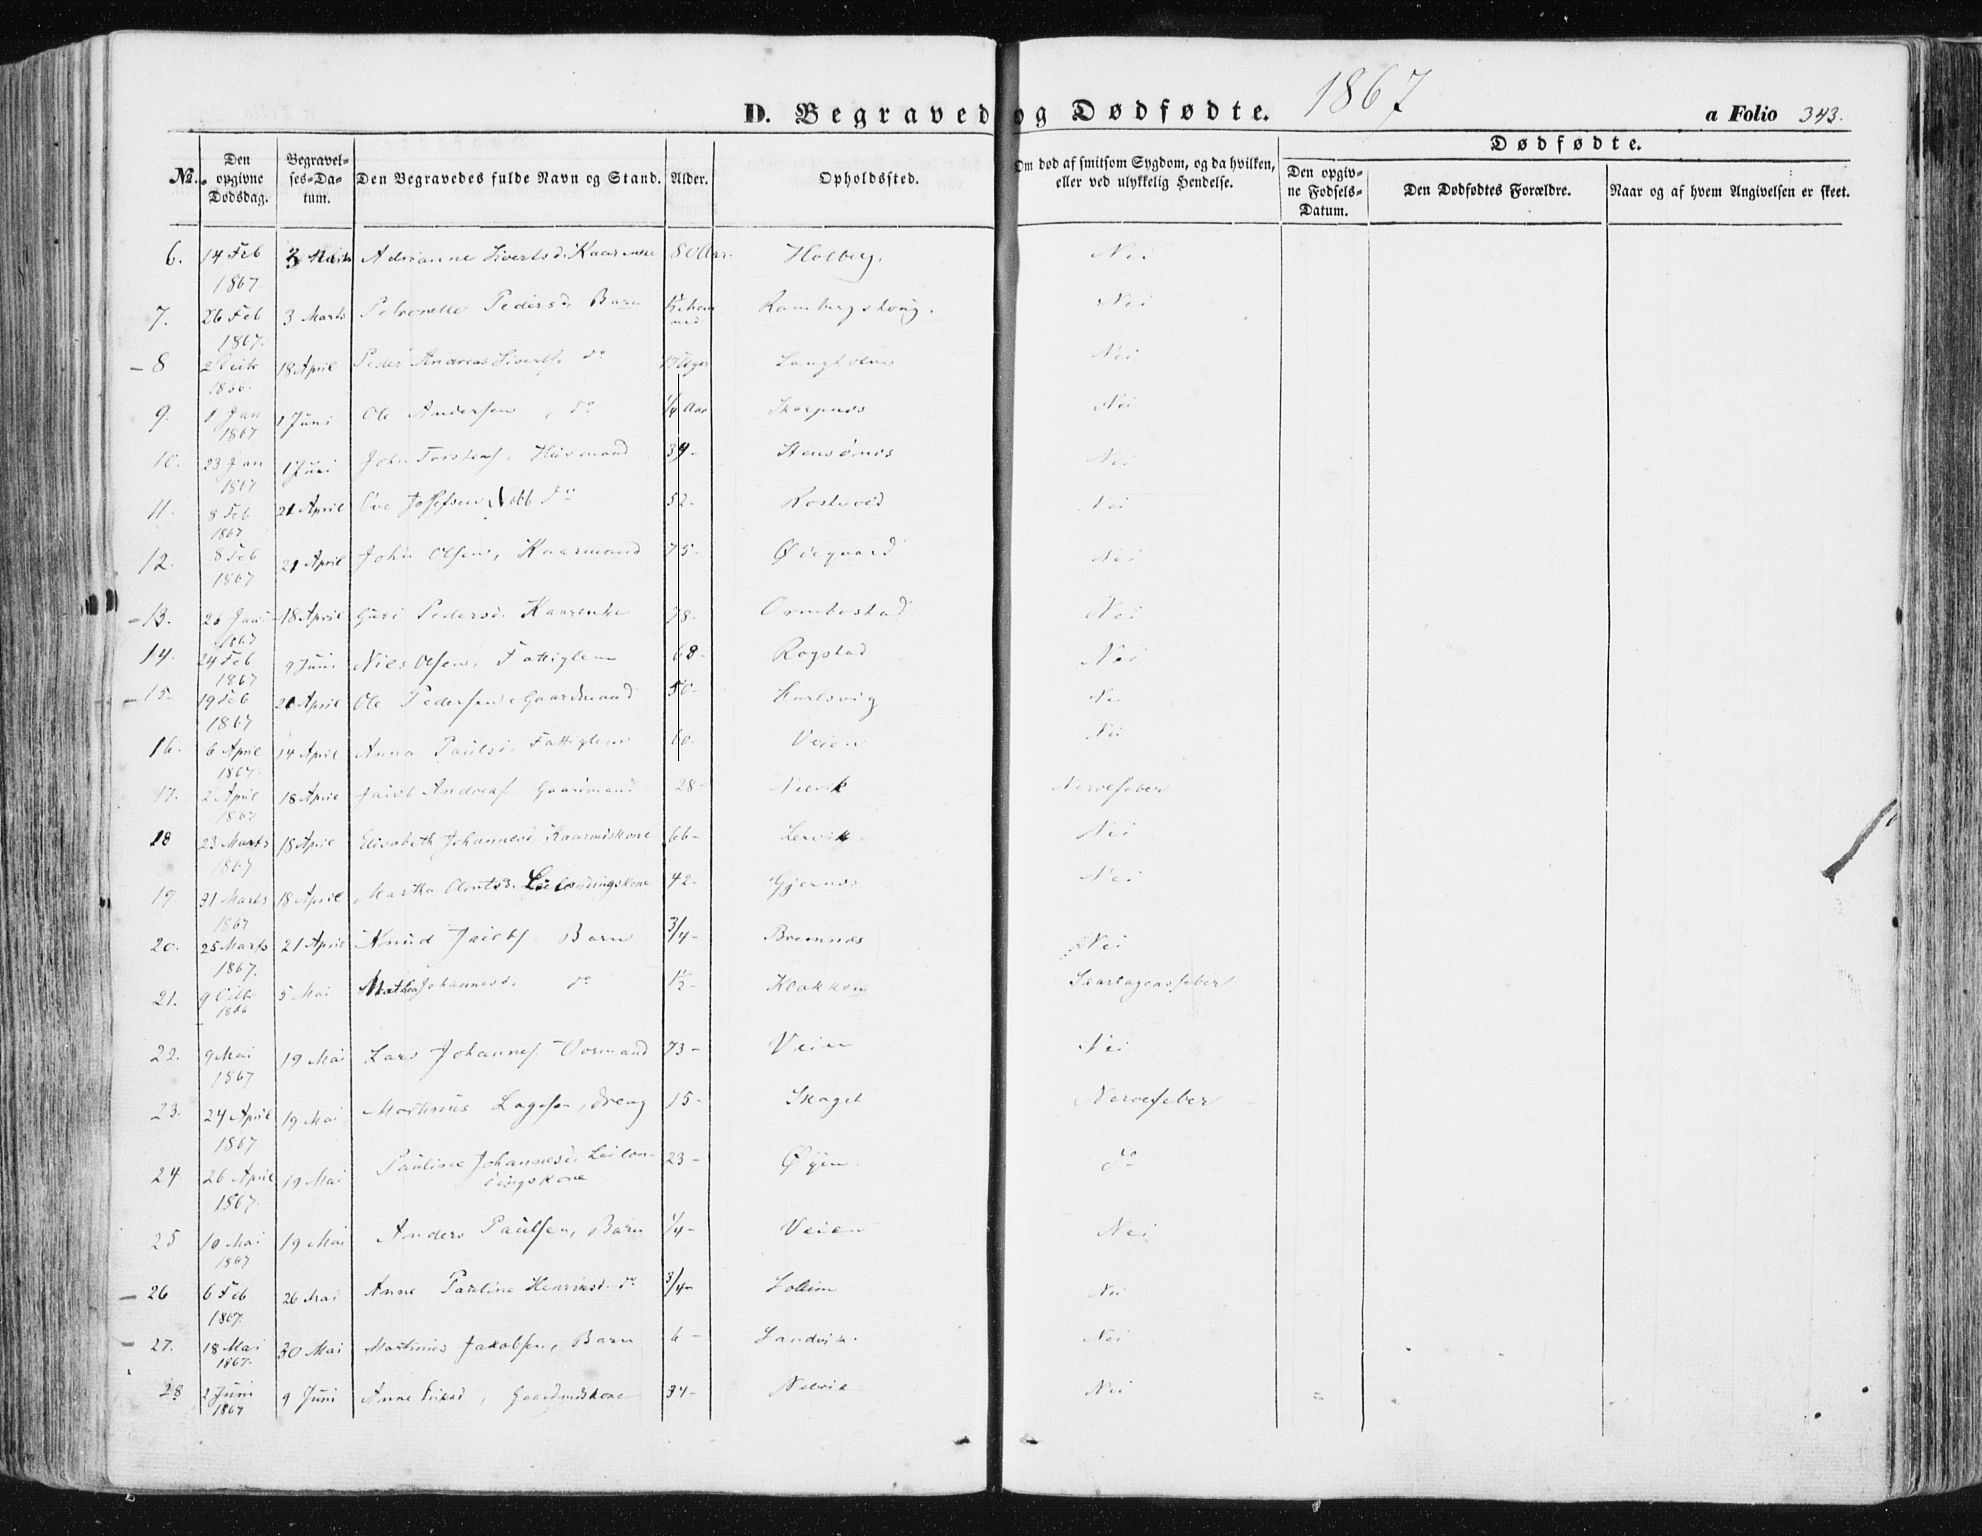 D. Begraved og Dødfødte. 1867
a Folio 343.
Dødfødte.
No. Den opgivne Dødsdag. Begravelses-Datum. Den Begravedes fulde Navn og Stand. Alder. Opholdssted. Om død af smitsom Sygdom, og da hvilken, eller ved ulykkelig Hendelse. Den opgivne Fødsels-Datum. Den Dødfødtes Forældre. Naar og af hvem Angivelsen er skeet.
6. 14 Feb 1867 3 Marts Adrianne Sivertsd. Kaarenke 80 Aar. Holberg. Nei
7. 26 Feb 1867. 3 Marts Petronelle Pedersd. Barn Nei
8 1866. 18 April Peder Andreas Siverts. do Langholm Nei
9. 1 Jan 1867 1 Juni Ole Andersen, do 1/4 Aar Skarpnes Nei
10. 23 Jan 1867 1 Juni John Huusmand 34- Nei
11. 8 Feb 1867 21 April Ove Nebb do 52- Nei
12. 8 Feb 1867 21 April John Olsen, Kaarmand 75- Ødegaard Nei
13. 26 Jan 1867 18 April Guri Pedersd. Kaarenke 78- Ormbostad Nei
14. 24 Feb 1867 9 Juni Niels Olsen, Fattiglem 68- Rogstad Nei
15- 19 Feb 1867 21 April Ole Pedersen Gaardmand 50- Karlsvig Nei
16. 6 April 1867. 14 April Anna Paulsd. Fattiglem 60- Veien Nei
17. 2 April 1867 18 April Jacob Andreas. Gaardmand 28- Nelvik Nervefeber
18 23 Marts 1867 18 April Elisabeth Johannesd. Kaarmdskone 66- Lervik- Nei
19. 31 Marts 1867 18 April Martha Leilændingskone 42- Gjernes Nei
20. 25 Marts 1867. 21 April Knud Jacobs. Barn 3/4- Bremnæs Nei
21. 9 1866 5 Mai Johannesd. do 1/2- Klokken Skarlagensfeber
22. 9 Mai 1867 19 Mai Lars Johannes. 73- Veien Nei
23. 24 April 1867 19 Mai Martinus Lagesen, Dreng 15- Skaget Nervefeber
24. 26 April 1867. 19 Mai Pauline Johannesd. Leilændingskone 23- Øyen. do
25 10 Mai 1867 19 Mai Anders Paulsen, Barn 1/4- Veien Nei
26 6 Feb 1867. 26 Mai Anne Pauline Henriksd. do 3/4- Solem Nei
27. 18 Mai 1867. 30 Mai Martinus Jakobsen, Barn 6- Sandvik. Nei
28 2 Juni 1867 9 Juni Anne Eriksd, Gaardmdskone 34- Nelvik Nei